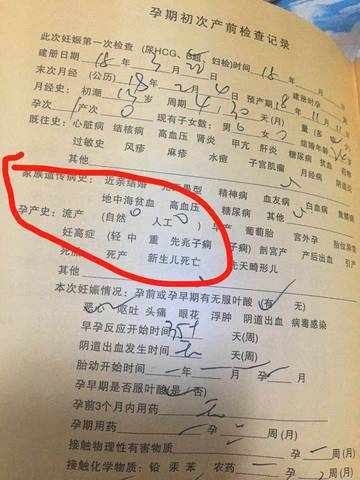 孕期初次产前检查记录
此次妊娠第一次检查 (尿HCG、B超、妇检)时间 18 年 月 日
建册日期 18 年 5 月 22 日 建册时孕
末次月经 (公历) 18 年 2 月 4 日 预产期 18 年 11 月
月经史: 初潮 岁 周期 4/30 天(月) 量(多
孕次 产次 0 现有子女数: 男 女 结婚年龄
既往史: 心脏病 结核病 高血压 肾炎 甲亢 肝炎 糖尿病
过敏史 风疹 麻疹 水痘 子宫肌瘤 月经病 阴道
其他
家族遗传病史: 近亲结婚 精神病 血友病 白血病
地中海贫血 高血压 糖尿病 其他
孕产史: 流产 (自然 0 人工 0 ) 早产 葡萄胎 宫外孕 胎位异
妊高症 (轻 中 重 先兆子痫 子痫) 剖宫产 产后出血 引产
死胎 死产 新生儿死亡 先天畸形儿
其他
本次妊娠情况: 孕前或孕早期有无服叶酸 (有 无)
恶心 呕吐 头痛 眼花 浮肿 阴道出血 病毒感染
早孕反应开始时间 35+ 天(周)
阴道出血发生时间 天(周)
胎动开始时间 年 月 孕 月
孕早期是否服叶酸(是 否)
孕前3个月内用药
孕期用药 孕 周(月)
接触物理性有害物质 孕 周(月)
接触化学物质: 铅 汞 苯 农药 孕 周(月)